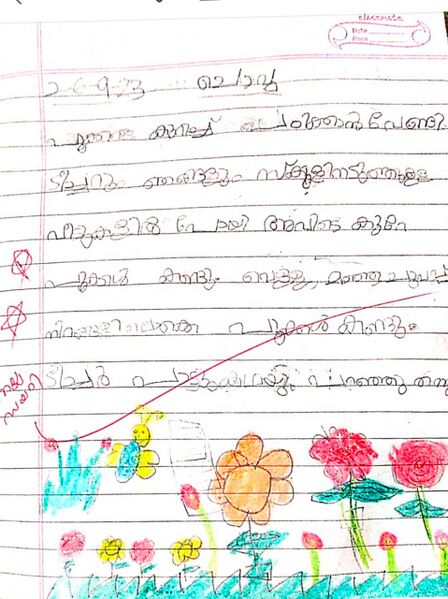 classmate
Date
Page
26-9-23 ചൊവ്വ
പൂക്കളെ കുറിച്ച് പഠിക്കാൻ വേണ്ടി
ടീച്ചറും ഞങ്ങളും സ്കൂളിനടുത്തുള്ള
വീടുകളിൽ പോയി അവിടെ കുറേ
പൂക്കൾ കണ്ടു. വെള്ള, മഞ്ഞ ചുവപ്പ്
നിറങ്ങളിലൊക്കെ പൂക്കൾ കണ്ടു.
ടീച്ചർ പറഞ്ഞു തന്നു
നല്ല
ഡയറി